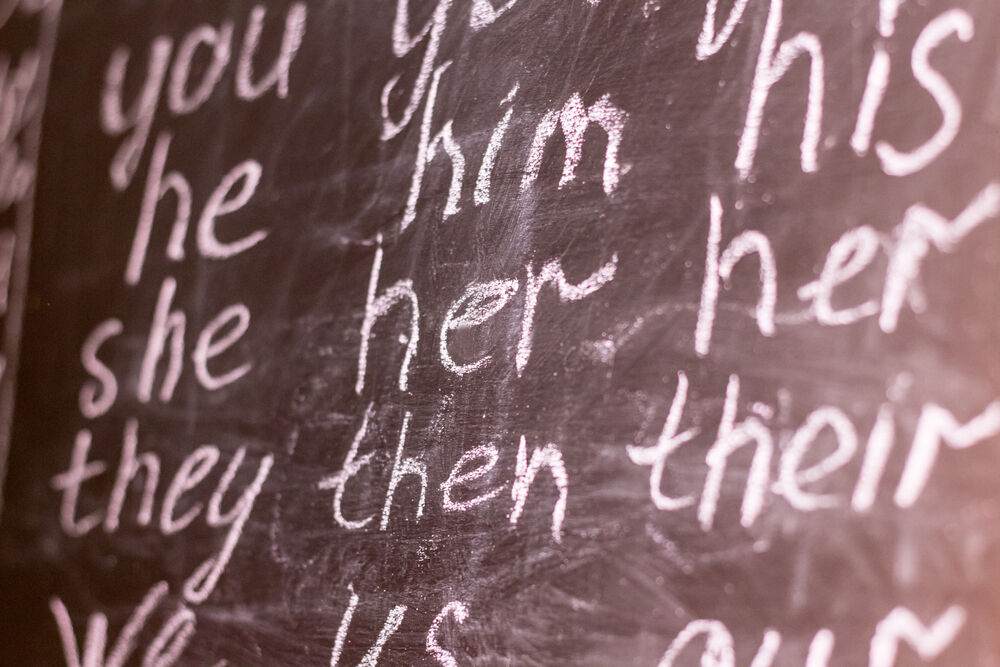 you
he him his
she her her
they then their
We us our